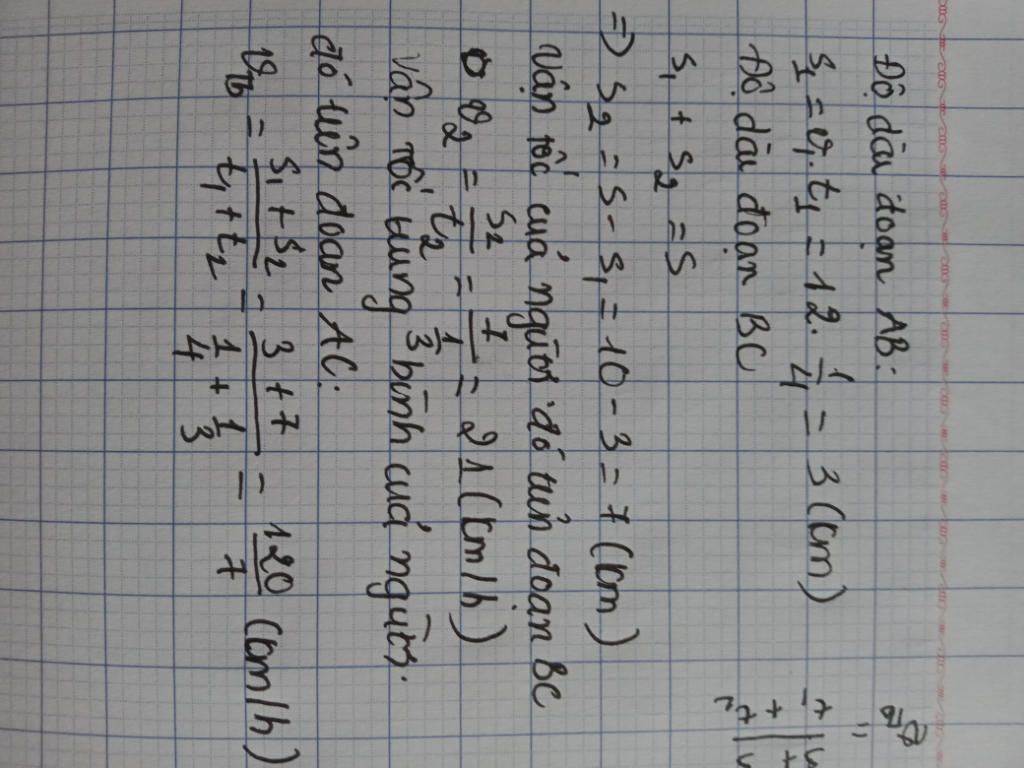 Độ dài đoạn AB:
s₁ = v₁.t₁ = 12. 1/4 = 3 (km)
Độ dài đoạn BC
s₁ + s₂ = s
=> s₂ = s - s₁ = 10 - 3 = 7 (km)
Vận tốc của người đó trên đoạn BC
v₂ = s₂/t₂ = 7/(1/3) = 21 (km/h)
Vận tốc trung bình của người
đó trên đoạn AC:
v_tb = (s₁ + s₂)/(t₁ + t₂) = (3 + 7)/(1/4 + 1/3) = 120/7 (km/h)